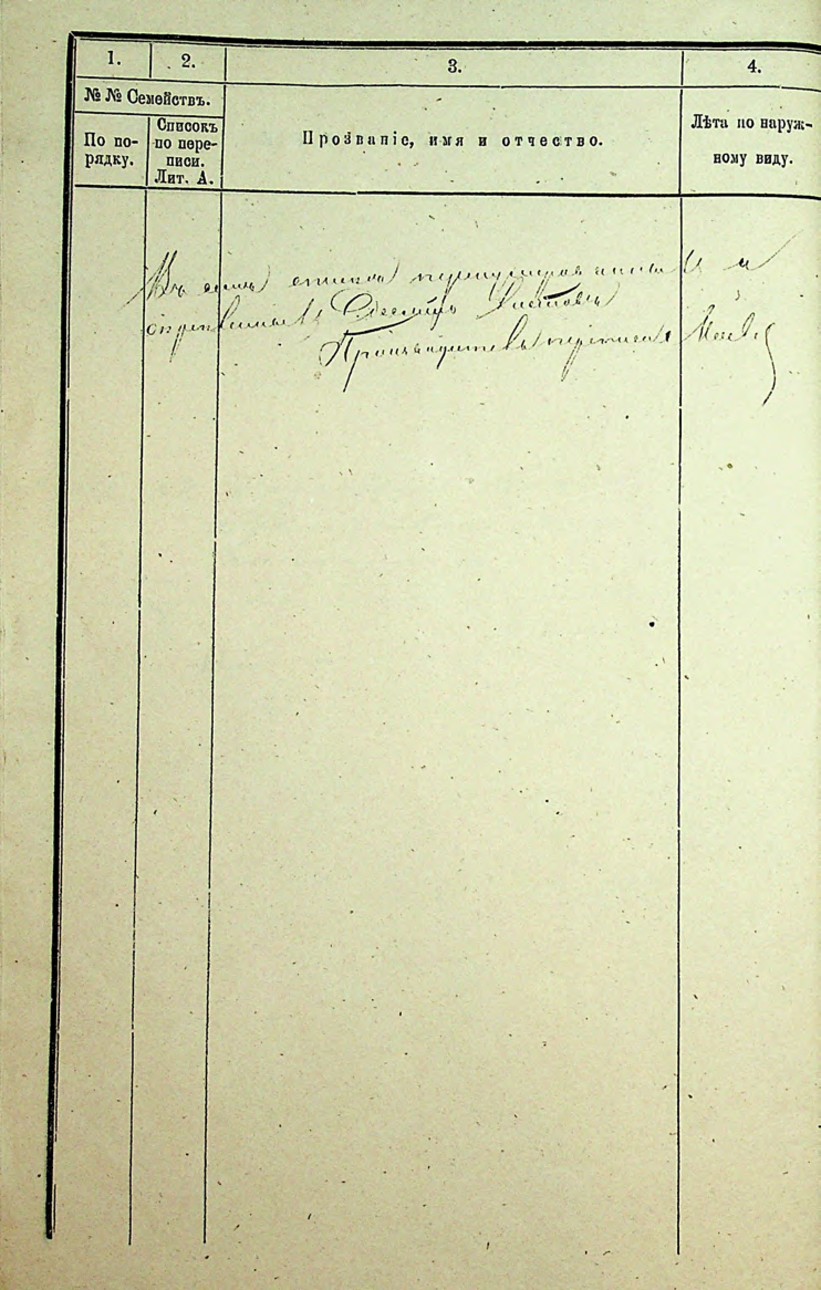 1. 2. 3. 4.
№ № Семействъ.
По по-
рядку.
Списокъ
по пере-
писи.
Лит. А.
Прозваніе, имя и отчество.
Лѣта по наруж-
ному виду.
Въ семъ спискѣ пронумерованныхъ и
скрѣпленныхъ Десять листовъ
Производитель переписи